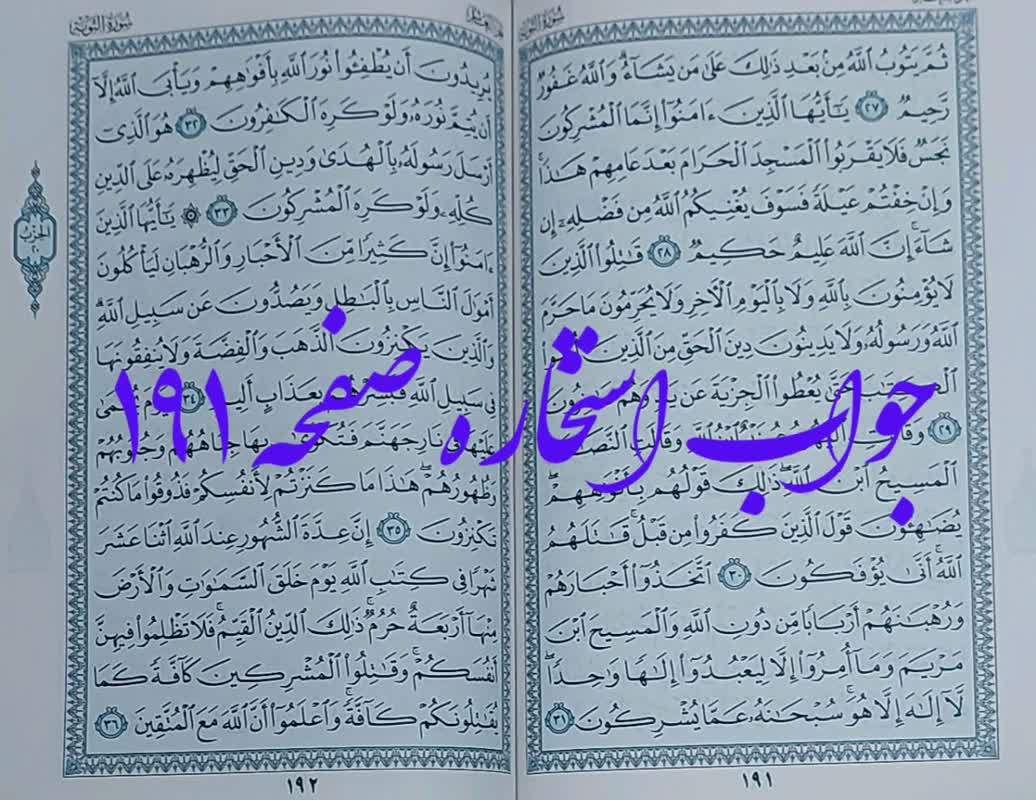 سُورَةُ التَّوْبَةِ
ثُمَّ يَتُوبُ ٱللَّهُ مِنۢ بَعْدِ ذَٰلِكَ عَلَىٰ مَن يَشَآءُ ۗ وَٱللَّهُ غَفُورٌ
رَّحِيمٌ ٢٧ يَٰٓأَيُّهَا ٱلَّذِينَ ءَامَنُوٓا۟ إِنَّمَا ٱلْمُشْرِكُونَ
نَجَسٌ فَلَا يَقْرَبُوا۟ ٱلْمَسْجِدَ ٱلْحَرَامَ بَعْدَ عَامِهِمْ هَٰذَا ۚ
وَإِنْ خِفْتُمْ عَيْلَةً فَسَوْفَ يُغْنِيكُمُ ٱللَّهُ مِن فَضْلِهِۦٓ إِن
شَآءَ ۚ إِنَّ ٱللَّهَ عَلِيمٌ حَكِيمٌ ٢٨ قَٰتِلُوا۟ ٱلَّذِينَ
لَا يُؤْمِنُونَ بِٱللَّهِ وَلَا بِٱلْيَوْمِ ٱلْءَاخِرِ وَلَا يُحَرِّمُونَ مَا حَرَّمَ
ٱللَّهُ وَرَسُولُهُۥ وَلَا يَدِينُونَ دِينَ ٱلْحَقِّ مِنَ ٱلَّذِينَ
حَتَّىٰ يُعْطُوا۟ ٱلْجِزْيَةَ عَن
٢٩ ٱللَّهِ وَقَالَتِ
ٱلْمَسِيحُ ٱبْنُ ٱللَّهِ ۖ ذَٰلِكَ قَوْلُهُم بِأَفْوَٰهِهِمْ ۖ
يُضَٰهِـُٔونَ قَوْلَ ٱلَّذِينَ كَفَرُوا۟ مِن قَبْلُ ۚ قَٰتَلَهُمُ
ٱللَّهُ ۚ أَنَّىٰ يُؤْفَكُونَ ٣٠ ٱتَّخَذُوٓا۟ أَحْبَارَهُمْ
وَرُهْبَٰنَهُمْ أَرْبَابًا مِّن دُونِ ٱللَّهِ وَٱلْمَسِيحَ ٱبْنَ
مَرْيَمَ وَمَآ أُمِرُوٓا۟ إِلَّا لِيَعْبُدُوٓا۟ إِلَٰهًا وَٰحِدًا ۖ
لَّآ إِلَٰهَ إِلَّا هُوَ ۚ سُبْحَٰنَهُۥ عَمَّا يُشْرِكُونَ ٣١
١٩١
سُورَةُ التَّوْبَةِ
يُرِيدُونَ أَن يُطْفِـُٔوا۟ نُورَ ٱللَّهِ بِأَفْوَٰهِهِمْ وَيَأْبَى ٱللَّهُ إِلَّآ
أَن يُتِمَّ نُورَهُۥ وَلَوْ كَرِهَ ٱلْكَٰفِرُونَ ٣٢ هُوَ ٱلَّذِىٓ
أَرْسَلَ رَسُولَهُۥ بِٱلْهُدَىٰ وَدِينِ ٱلْحَقِّ لِيُظْهِرَهُۥ عَلَى ٱلدِّينِ
كُلِّهِۦ وَلَوْ كَرِهَ ٱلْمُشْرِكُونَ ٣٣ ۞ يَٰٓأَيُّهَا ٱلَّذِينَ
ءَامَنُوٓا۟ إِنَّ كَثِيرًا مِّنَ ٱلْأَحْبَارِ وَٱلرُّهْبَانِ لَيَأْكُلُونَ
أَمْوَٰلَ ٱلنَّاسِ بِٱلْبَٰطِلِ وَيَصُدُّونَ عَن سَبِيلِ ٱللَّهِ ۗ
وَٱلَّذِينَ يَكْنِزُونَ ٱلذَّهَبَ وَٱلْفِضَّةَ وَلَا يُنفِقُونَهَا
فِى سَبِيلِ ٱللَّهِ فَبَشِّرْهُم بِعَذَابٍ أَلِيمٍ ٣٤ يَوْمَ يُحْمَىٰ
عَلَيْهَا فِى نَارِ جَهَنَّمَ فَتُكْوَىٰ بِهَا جِبَاهُهُمْ وَجُنُوبُهُمْ
وَظُهُورُهُمْ ۖ هَٰذَا مَا كَنَزْتُمْ لِأَنفُسِكُمْ فَذُوقُوا۟ مَا كُنتُمْ
تَكْنِزُونَ ٣٥ إِنَّ عِدَّةَ ٱلشُّهُورِ عِندَ ٱللَّهِ ٱثْنَا عَشَرَ
شَهْرًا فِى كِتَٰبِ ٱللَّهِ يَوْمَ خَلَقَ ٱلسَّمَٰوَٰتِ وَٱلْأَرْضَ
مِنْهَآ أَرْبَعَةٌ حُرُمٌ ۚ ذَٰلِكَ ٱلدِّينُ ٱلْقَيِّمُ ۚ فَلَا تَظْلِمُوا۟ فِيهِنَّ
أَنفُسَكُمْ ۚ وَقَٰتِلُوا۟ ٱلْمُشْرِكِينَ كَآفَّةً كَمَا
يُقَٰتِلُونَكُمْ كَآفَّةً ۚ وَٱعْلَمُوٓا۟ أَنَّ ٱللَّهَ مَعَ ٱلْمُتَّقِينَ ٣٦
١٩٢
الحزب
٢٠
جواب استخاره صفحه ۱۹۱